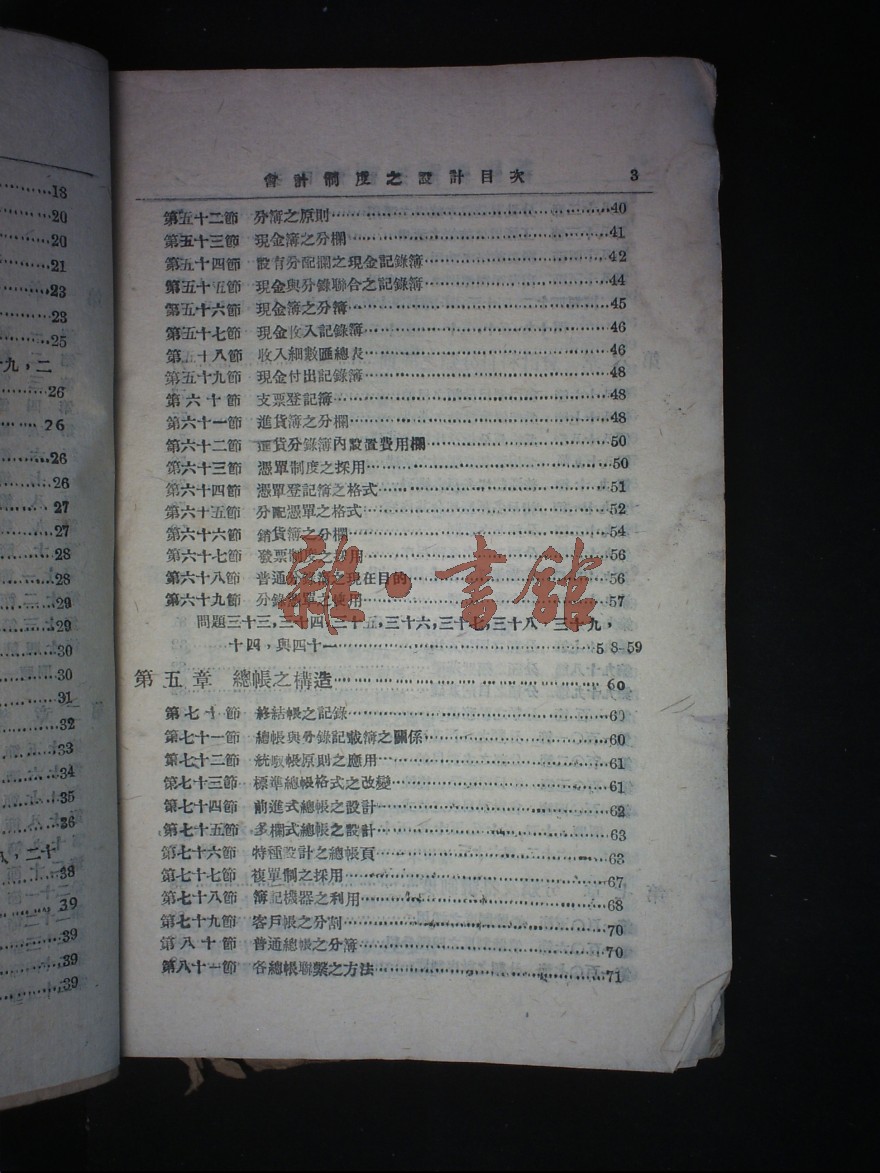 18
20
20
21
23
23
25
十九，二
26
26
26
26
27
27
28
28
29
29
30
30
31
32
33
34
35
36
八，二十
38
39
39
39
39
會計制度之設計目次 3
第五十二節 分簿之原則……40
第五十三節 現金簿之分欄……41
第五十四節 設有分配欄之現金記錄簿……42
第五十五節 現金與分錄聯合之記錄簿……44
第五十六節 現金簿之分簿……45
第五十七節 現金收入記錄簿……46
第五十八節 收入細數匯總表……46
第五十九節 現金付出記錄簿……48
第六十節 支票登記簿……48
第六十一節 進貨簿之分欄……48
第六十二節 進貨分錄簿內設置費用欄……50
第六十三節 憑單制度之採用……50
第六十四節 憑單登記簿之格式……51
第六十五節 分配憑單之格式……52
第六十六節 銷貨簿之分欄……54
第六十七節 發票制度之 用……56
第六十八節 普通分錄簿之現在目的……56
第六十九節 分錄憑單之使用……57
問題三十三，三十四，三十五，三十六，三十七，三十八，三十九，
十四，與四十一……58-59
第五章 總帳之構造……60
第七十節 終結帳之記錄……60
第七十一節 總帳與分錄記載簿之關係……60
第七十二節 統馭帳原則之應用……61
第七十三節 標準總帳格式之改變……61
第七十四節 前進式總帳之設計……62
第七十五節 多欄式總帳之設計……63
第七十六節 特種設計之總帳頁……63
第七十七節 複單制之採用……67
第七十八節 簿記機器之利用……68
第七十九節 客戶帳之分割……70
第八十節 普通總帳之分簿……70
第八十一節 各總帳聯繫之方法……71
雜·書館